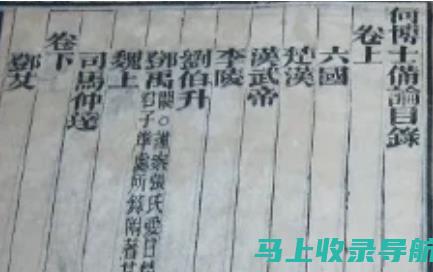 何博士備論目錄
卷上
六國
楚漢
漢武帝
李陵
劉伯升
鄧禹闕○謹案張氏愛日精
子準處所錄附著其
魏上
司馬仲達
卷下
鄧艾
马上收录导航